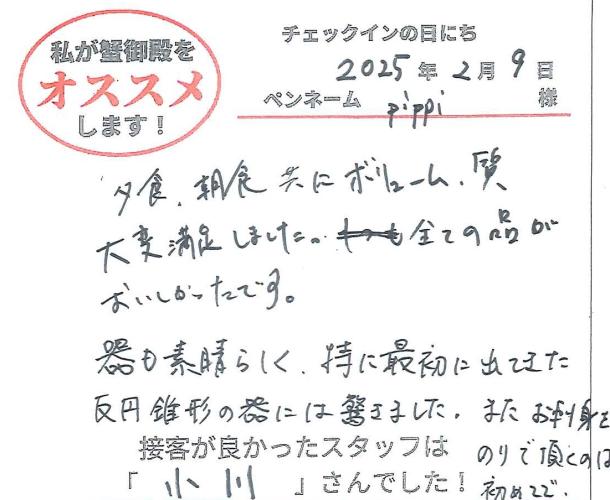 私が蟹御殿を
オススメ
します！
チェックインの日にち
2025年2月9日
ペンネーム pippi 様
夕食、朝食 共に ボリューム、質
大変満足しました。全ての品が
おいしかったです。
器も素晴らしく、特に最初に出てきた
反円錐形の器には驚きました。また お刺身を
のりで頂くのは
初めてで、
接客が良かったスタッフは
「小川」さんでした！